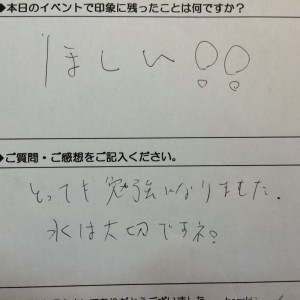 ◆本日のイベントで印象に残ったことは何ですか?
ほしい!!
◆ご質問・ご感想をご記入ください。
とっても勉強になりました.
水は大切ですネ!